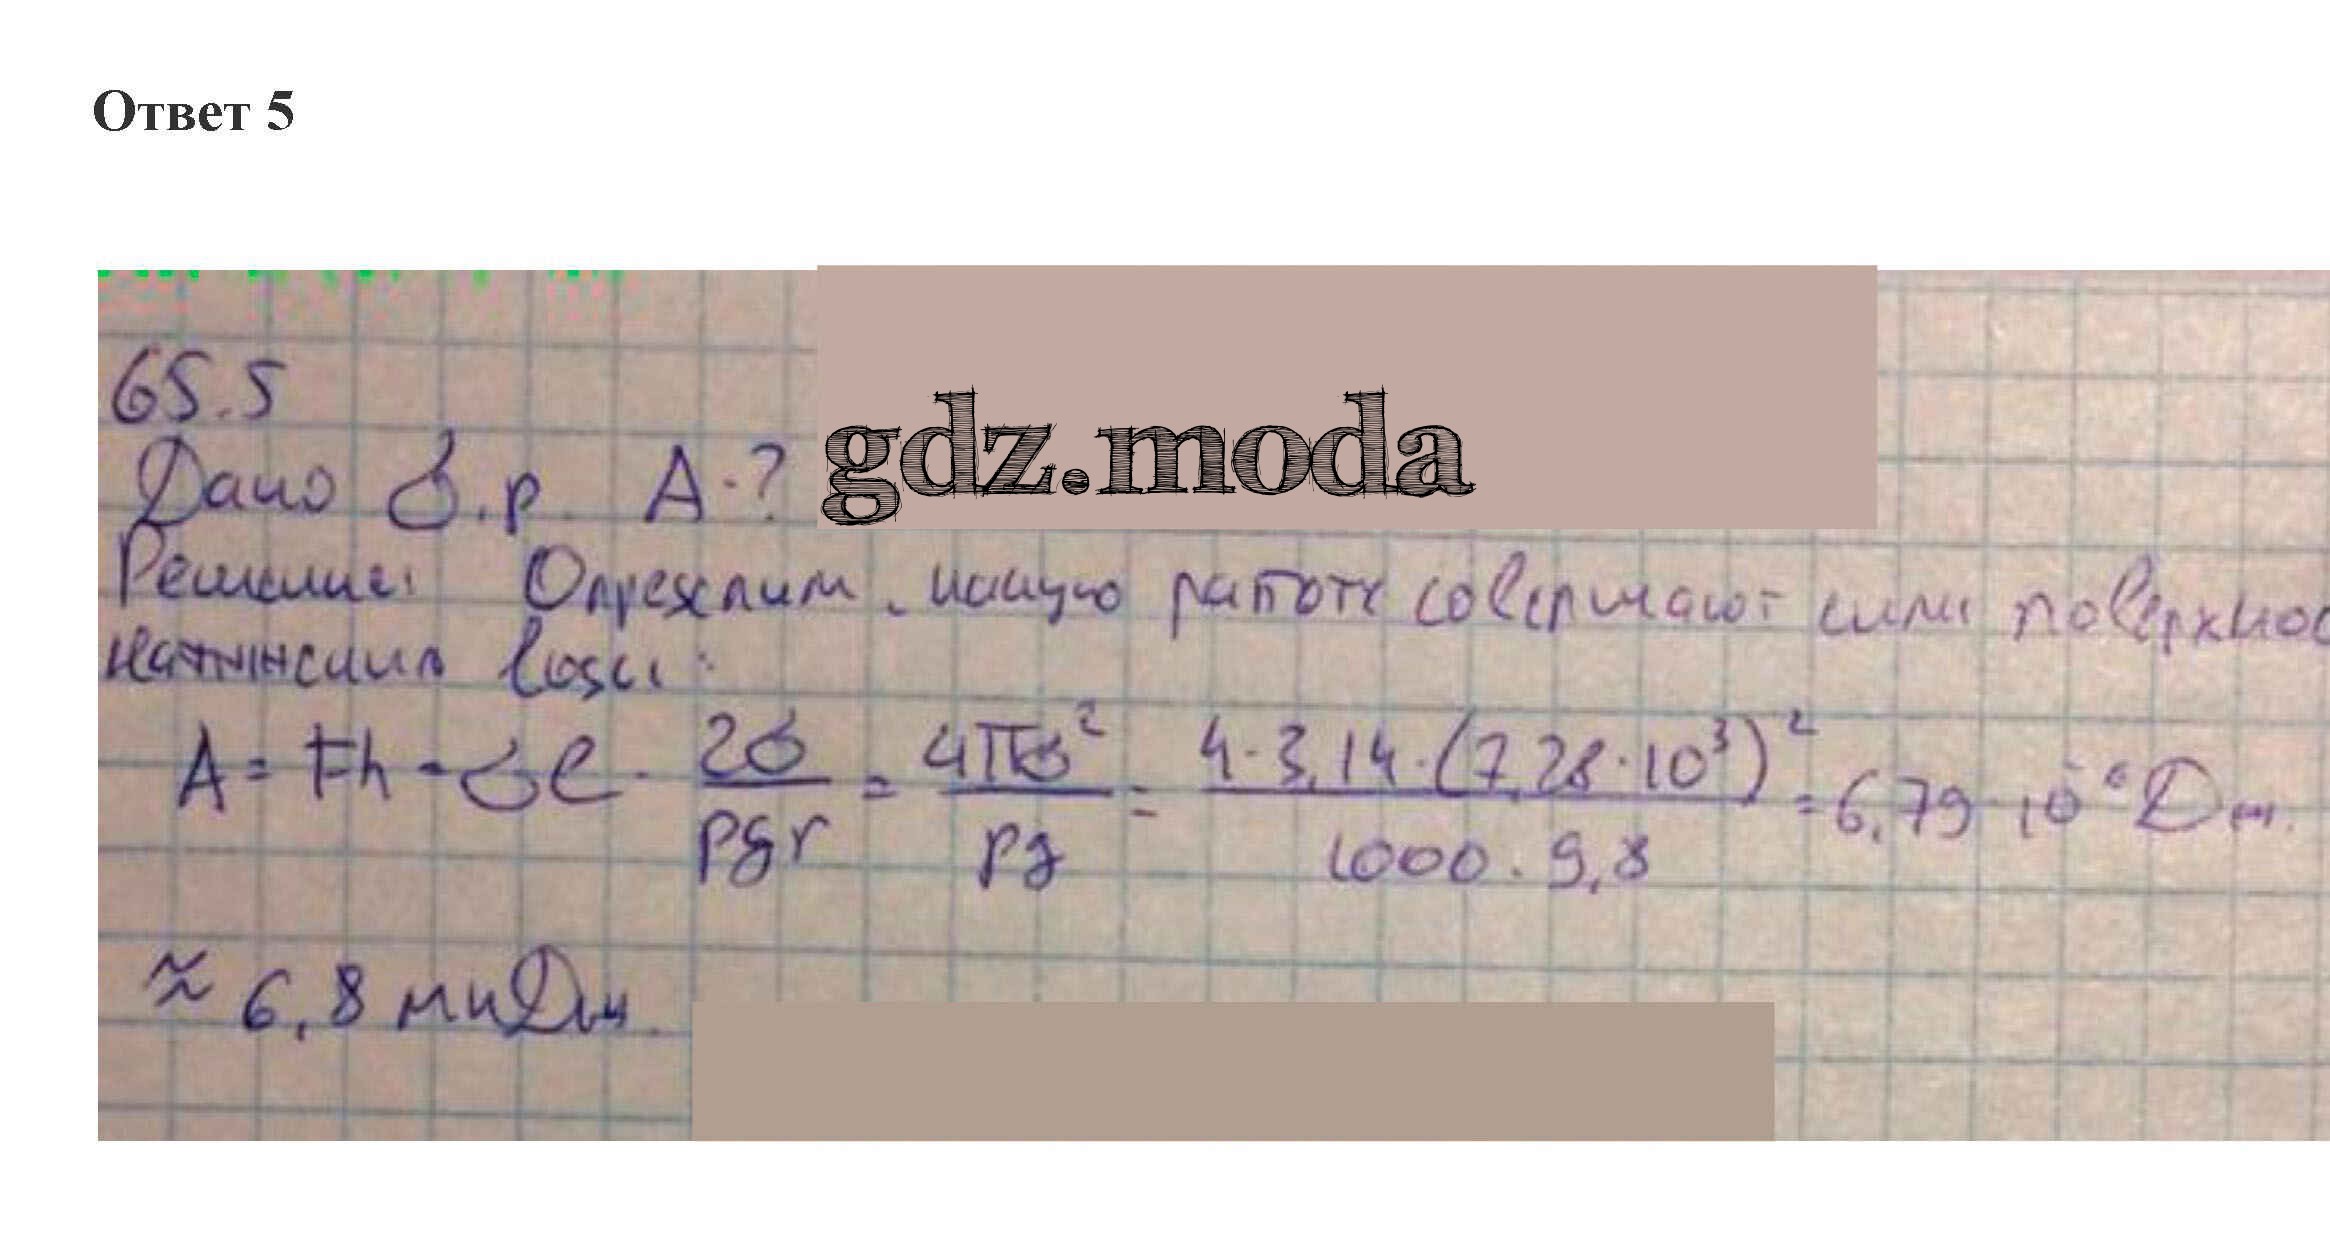 Ответ 5
65.5
gdz.moda
Дано σ. ρ. A-?
Решение: Определим, какую работу совершают силы поверхнос
натяжения воды:
A = Fh = σl · 2σ/ρgr = 4πσ²/ρg = 4·3,14·(7,28·10³)²/1000·9,8 = 6,79·10⁻⁶ Дж.
≈ 6,8 мкДж.